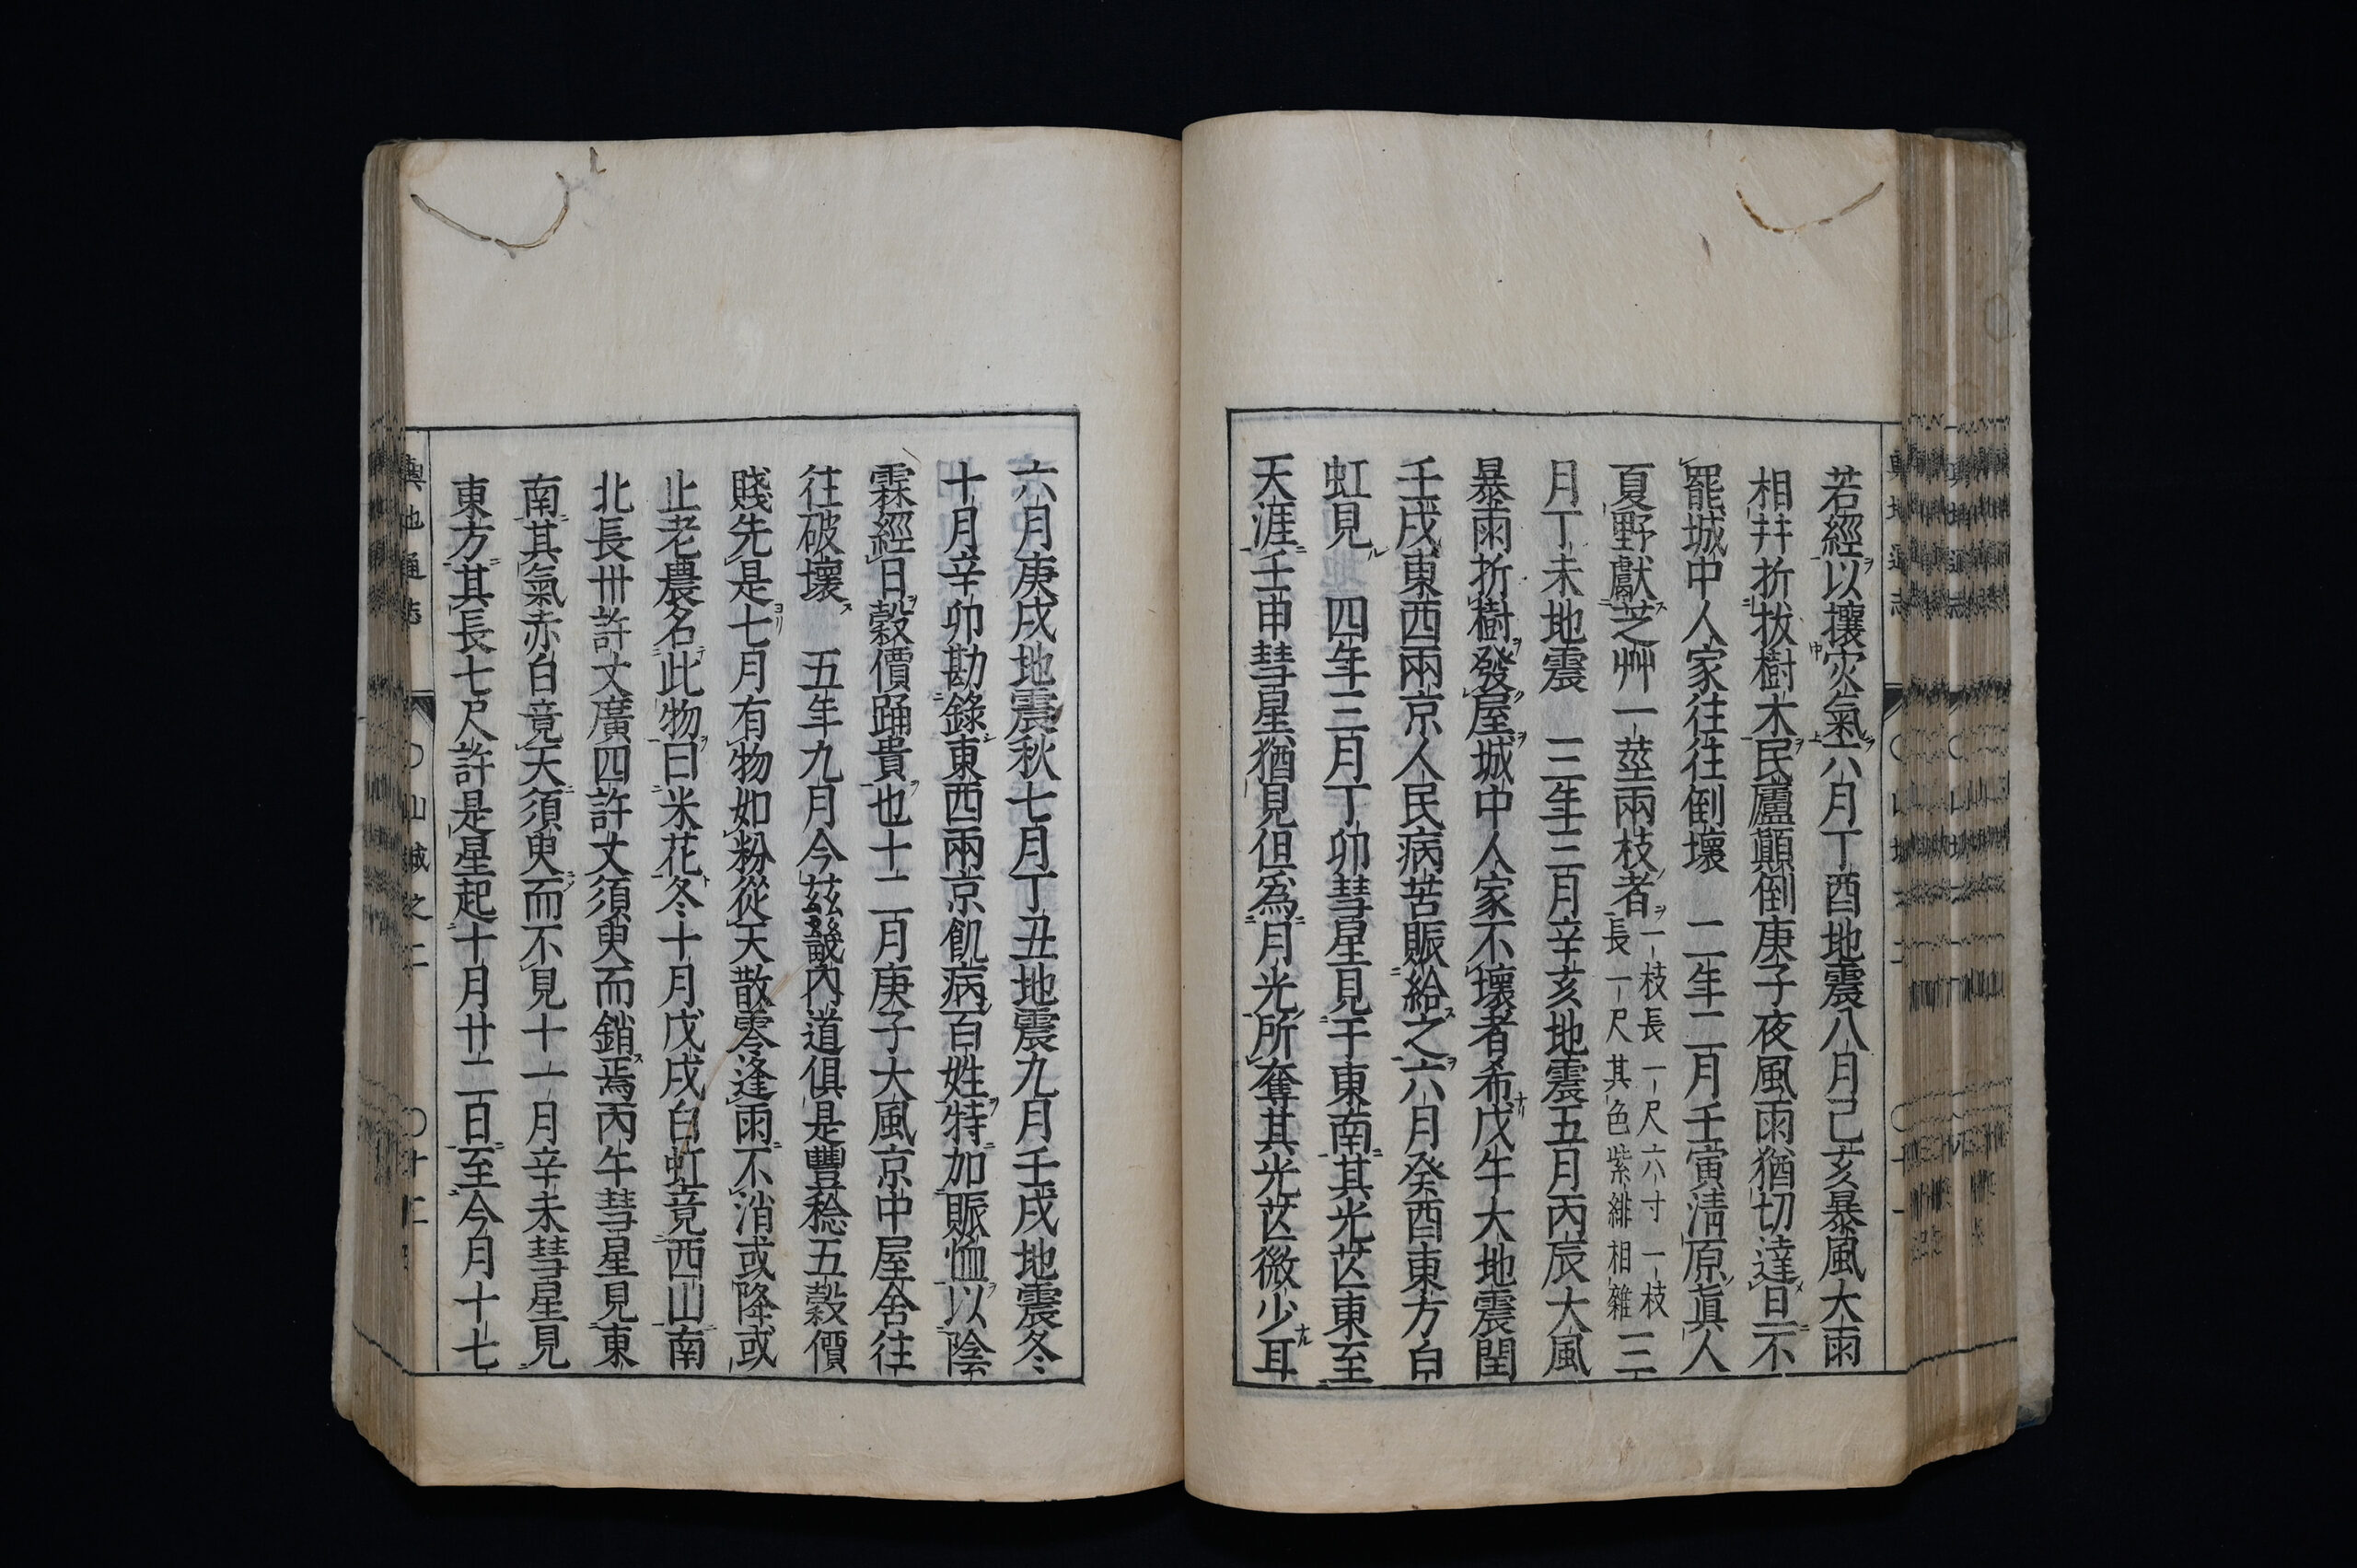 若經以攘灾氣六月丁酉地震八月己亥暴風大雨
相并折拔樹木民廬顚倒庚子夜風雨猶切達旦不
罷城中人家往往倒壞　二年二月壬寅淸原眞人
夏野獻芝艸一莖兩枝者一枝長一尺六寸一枝長一尺其色紫緋相雜三
月丁未地震　三年三月辛亥地震五月丙辰大風
暴雨折樹發屋城中人家不壞者希戊午大地震閏
壬戌東西兩京人民病苦賑給之六月癸酉東方白
虹見　四年三月丁卯彗星見于東南其光芒東至
天涯壬申彗星猶見但爲月光所奪其光芒微少耳
六月庚戌地震秋七月丁丑地震九月壬戌地震冬
十月辛卯勘錄東西兩京飢病百姓特加賑恤以陰
霖經日穀價踊貴也十二月庚子大風京中屋舍往
往破壞　五年九月今茲畿內七道俱是豐稔五穀價
賤先是七月有物如粉從天散零逢雨不消或降或
止老農名此物曰米花冬十月戊戌白虹竟西山南
北長卅許丈廣四許丈須臾而銷焉丙午彗星見東
南其氣赤白竟天須臾而不見十一月辛未彗星見
東方其長七尺許是星起十月廿二日至今月十七
輿地通志　山城之二　十二